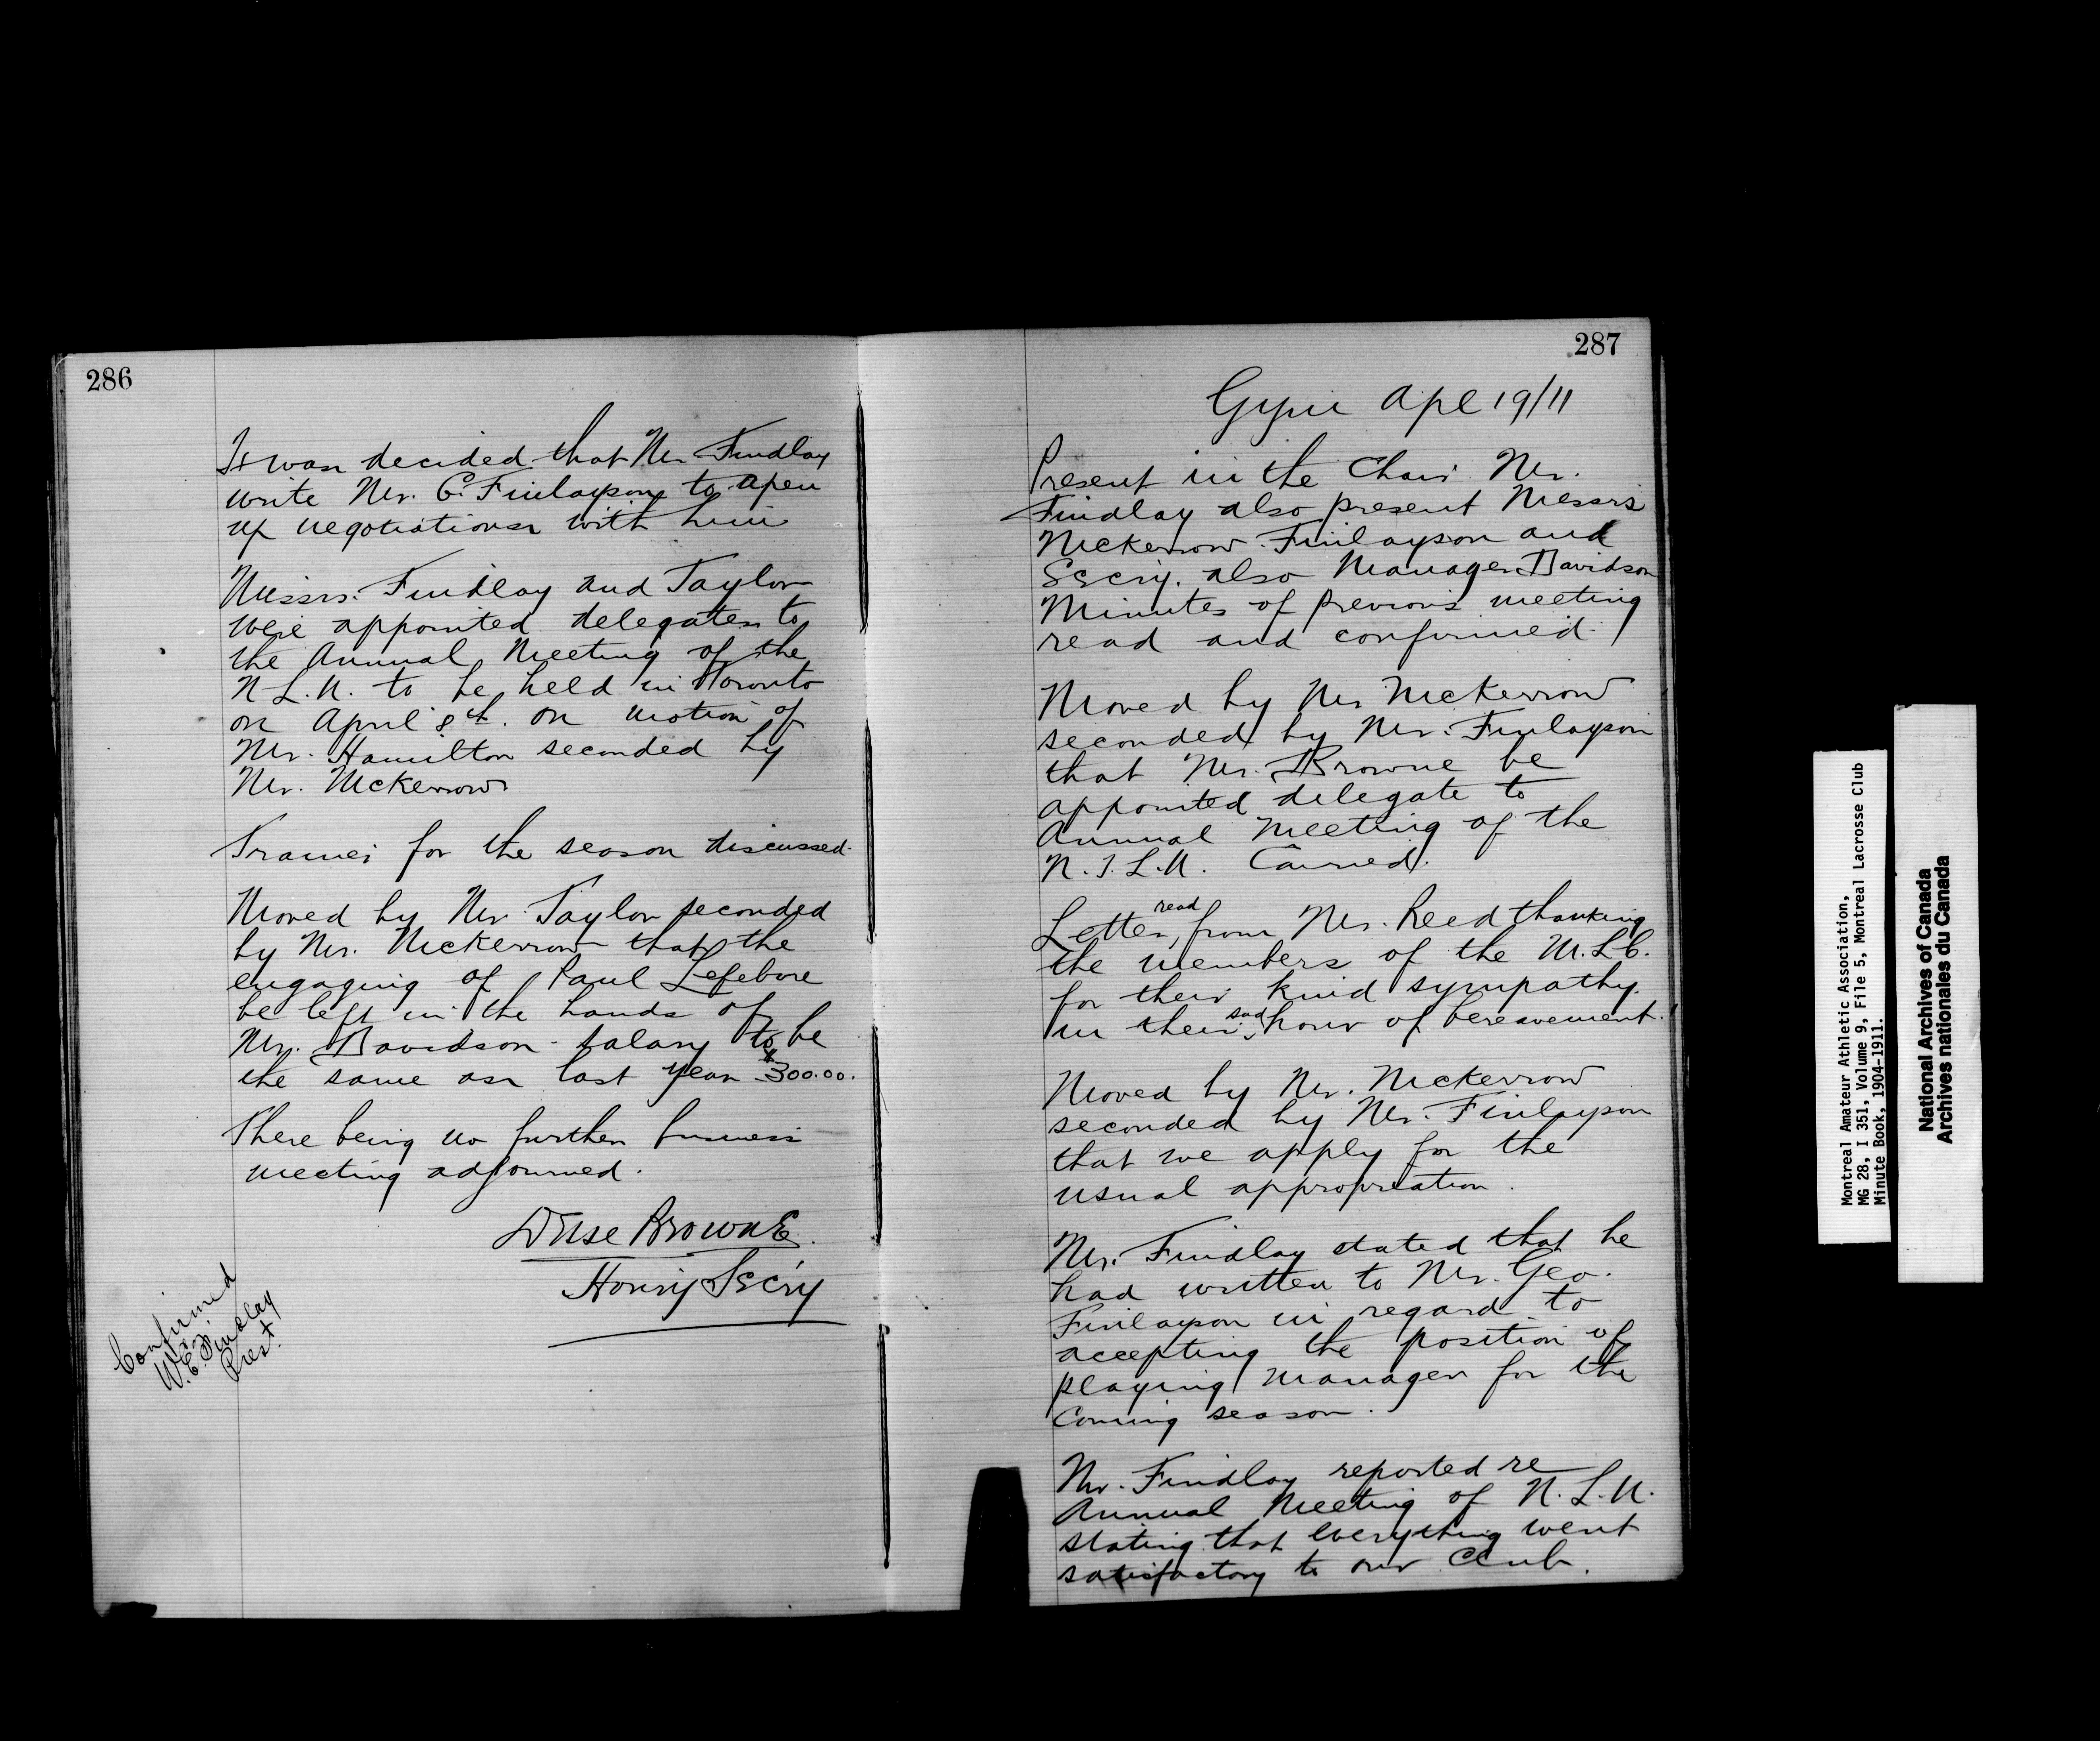 286
It was decided that Mr Findlay
write Mr. G. Finlayson to open
up negotiations with him
Messrs. Findlay and Taylor
were appointed delegates to
the Annual Meeting of the
N L.U. to be held in Toronto
on April 8th. on motion of
Mr. Hamilton seconded by
Mr. McKerrow
Trainer for the season discussed.
Moved by Mr. Taylor seconded
by Mr. McKerrow that the
engaging of Paul Lefebvre
be left in the hands of
Mr. Davidson - salary to be
the same as last year $300.00.
There being no further business
meeting adjourned.
Browne.
Hon'y Sec'y
Confirmed
W.E. Findlay
Prest.
287
Gym Apl 19/11
Present in the Chair Mr.
Findlay also present Messrs
McKerrow Finlayson and
Secy. also Manager Davidson
Minutes of previous meeting
read and confirmed.
Moved by Mr McKerrow
seconded by Mr. Finlayson
that Mr. Browne be
appointed delegate to
Annual Meeting of the
N.I.L.U. Carried.
Letter read from Mr. Reed thanking
the members of the M.L.C.
for their kind sympathy
in their sad hour of bereavement.
Moved by Mr. McKerrow
seconded by Mr. Finlayson
that we apply for the
usual appropriation.
Mr. Findlay stated that he
had written to Mr. Geo.
Finlayson in regard to
accepting the position of
playing manager for the
Coming season.
Mr. Findlay reported re
Annual Meeting of N.L.U.
stating that everything went
satisfactory to our Club.
Montreal Amateur Athletic Association,
MG 28, I 351, Volume 9, File 5, Montreal Lacrosse Club
Minute Book, 1904-1911.
National Archives of Canada
Archives nationales du Canada